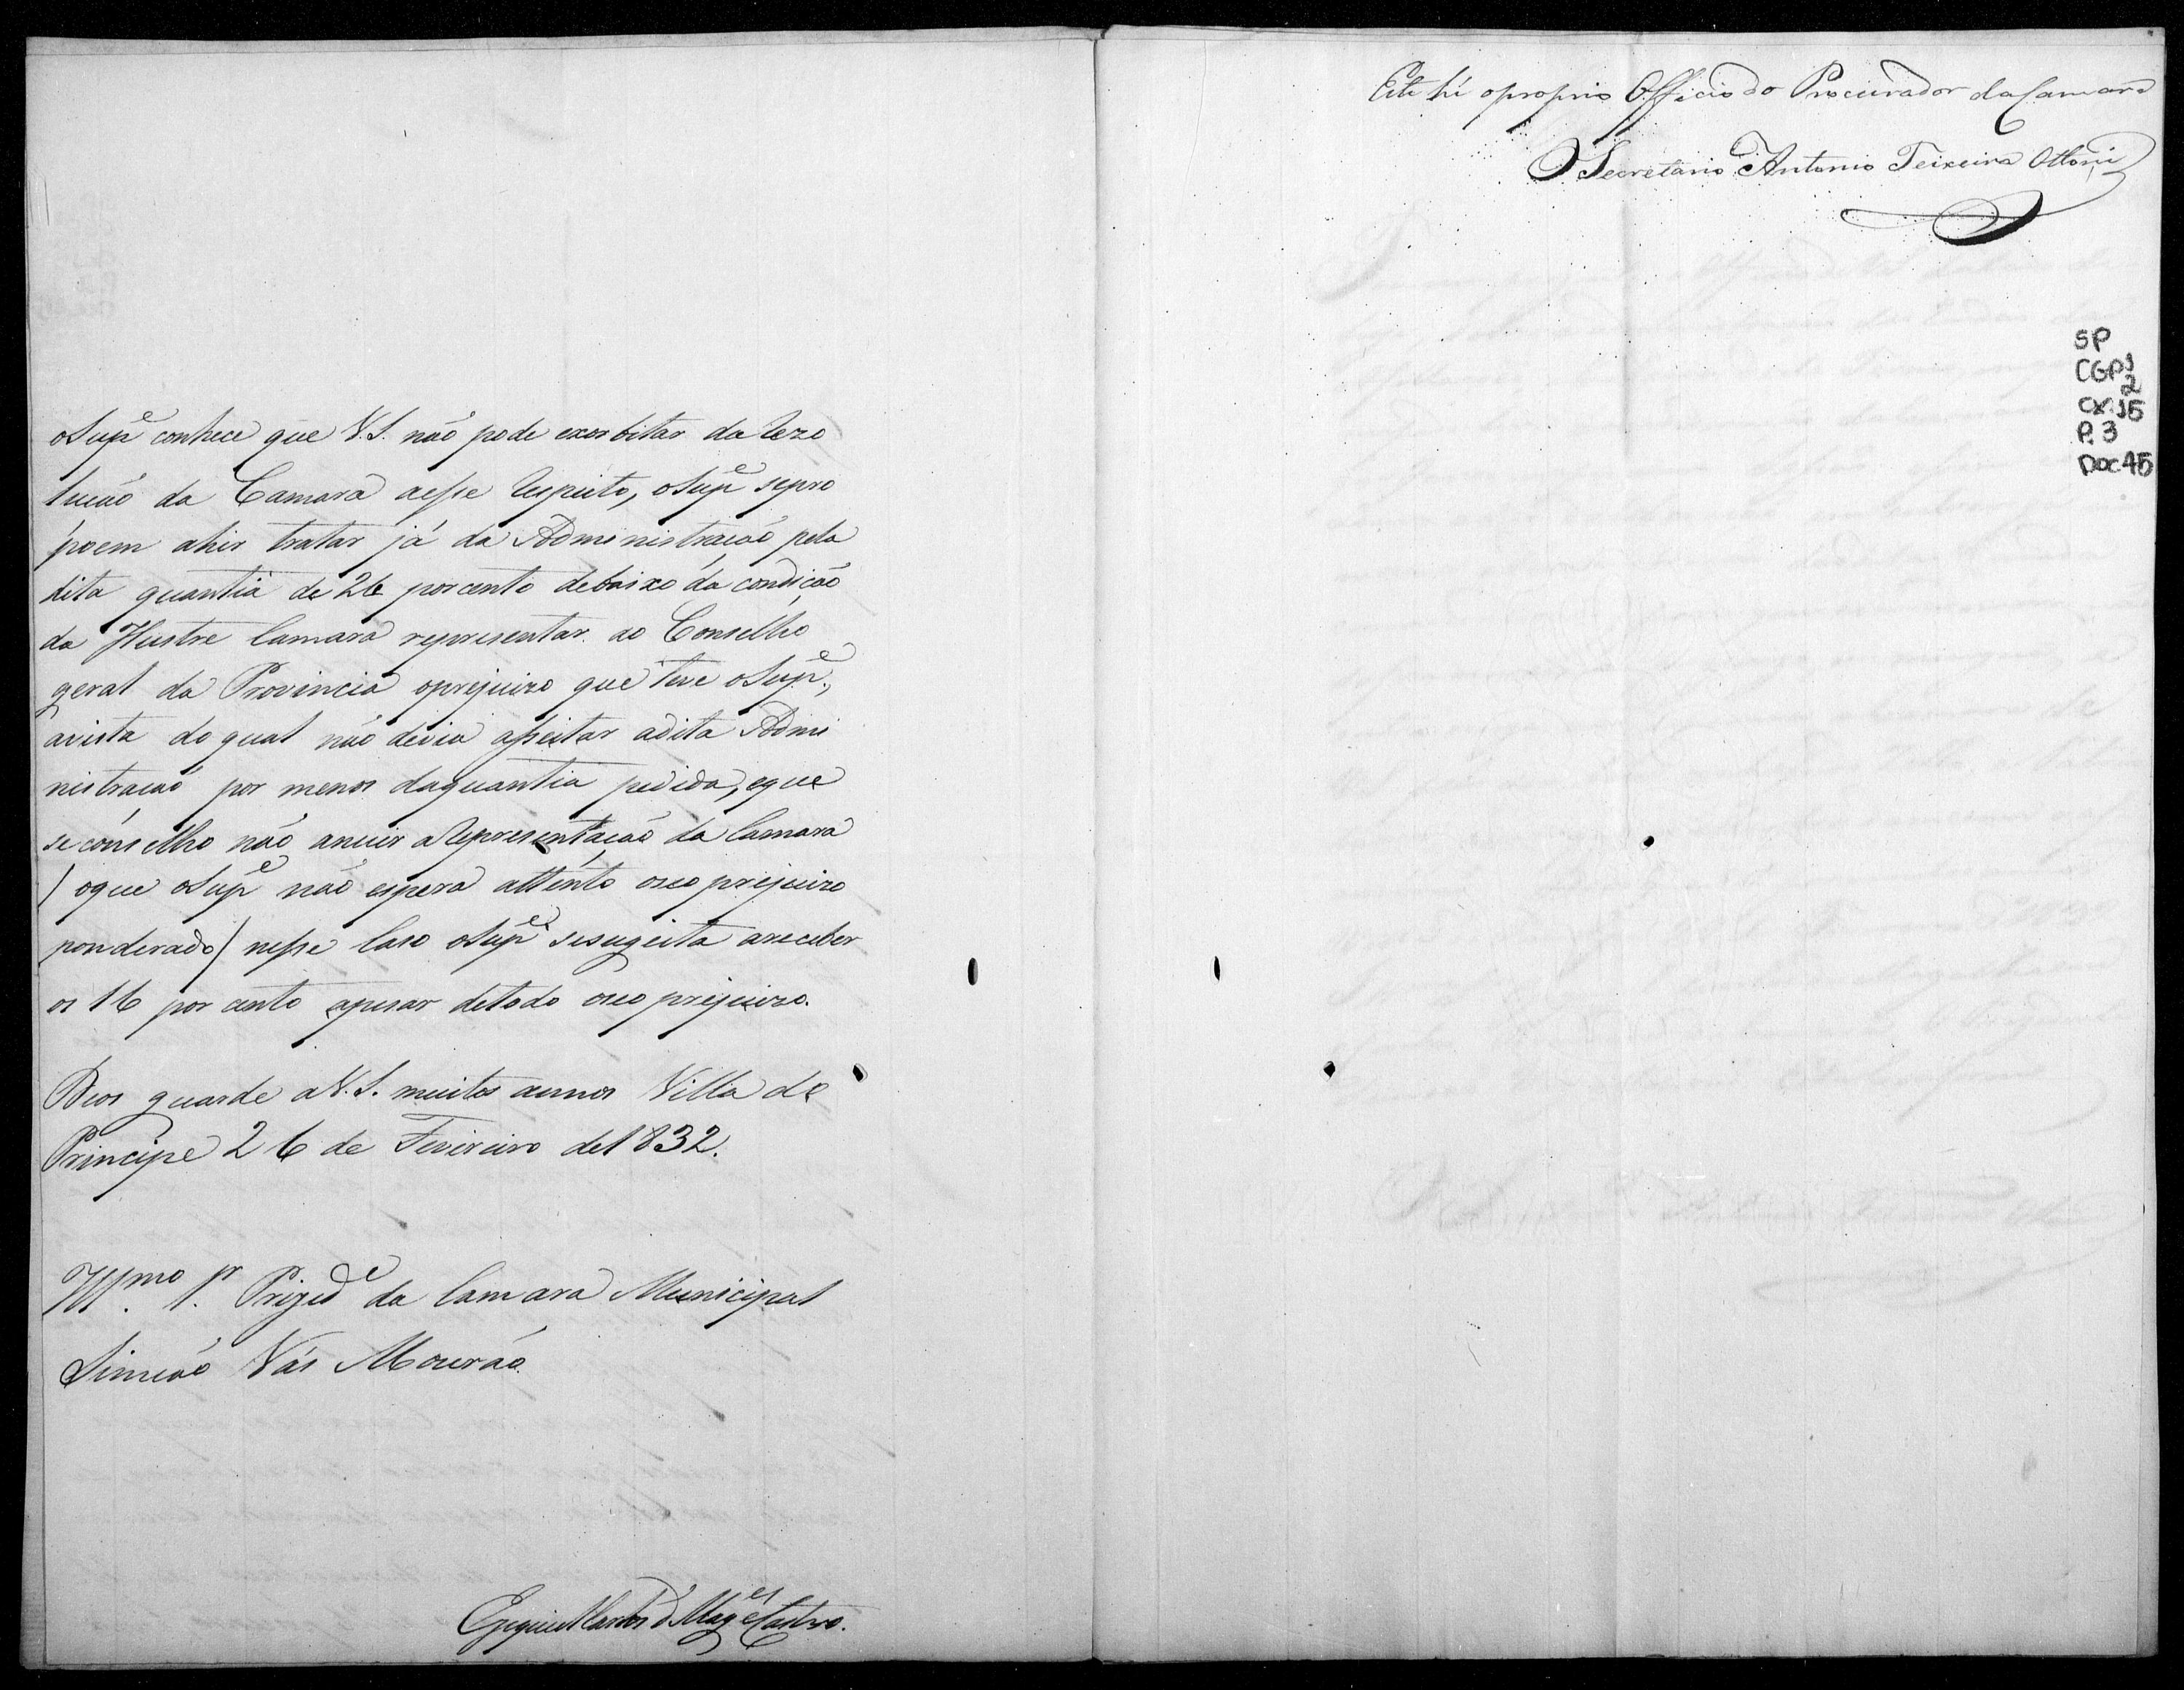 oSupe conhece que V.S. não pode exorbitar da Rezo
lucão da Camara aesse Respeito, oSupe sepro
poem ahir tratar já da Administracão pela
dita quantia de 26 porcento debaixo da condição
da Illustre Camara representar ao Conselho
geral da Provincia oprejuizo que teve oSupe,
avista do qual não devia asseitar adita Admi
nistracão por menos daquantia pedida, eque
se conselho não anuir a Representação da Camara
/ oque oSupe não espera attento oseo prejuizo
ponderado / nesse Caso oSupe sesugeita areceber
os 16 por cento apesar detodo oseo prejuizo.
Deos guarde aV.S. muitos annos Villa do
Principe 26 de Fevereiro de1832.
Illmo Sr. Prezide da Camara Municipal
Simião Vás Mourão.
Ezequiel de Mages Castro.
Este hé oproprio Officio do Procurador da Camara
O Secretario Antonio Teixeira Ottoni
SP
CGP1
2
CX.15
P.3
Doc 45